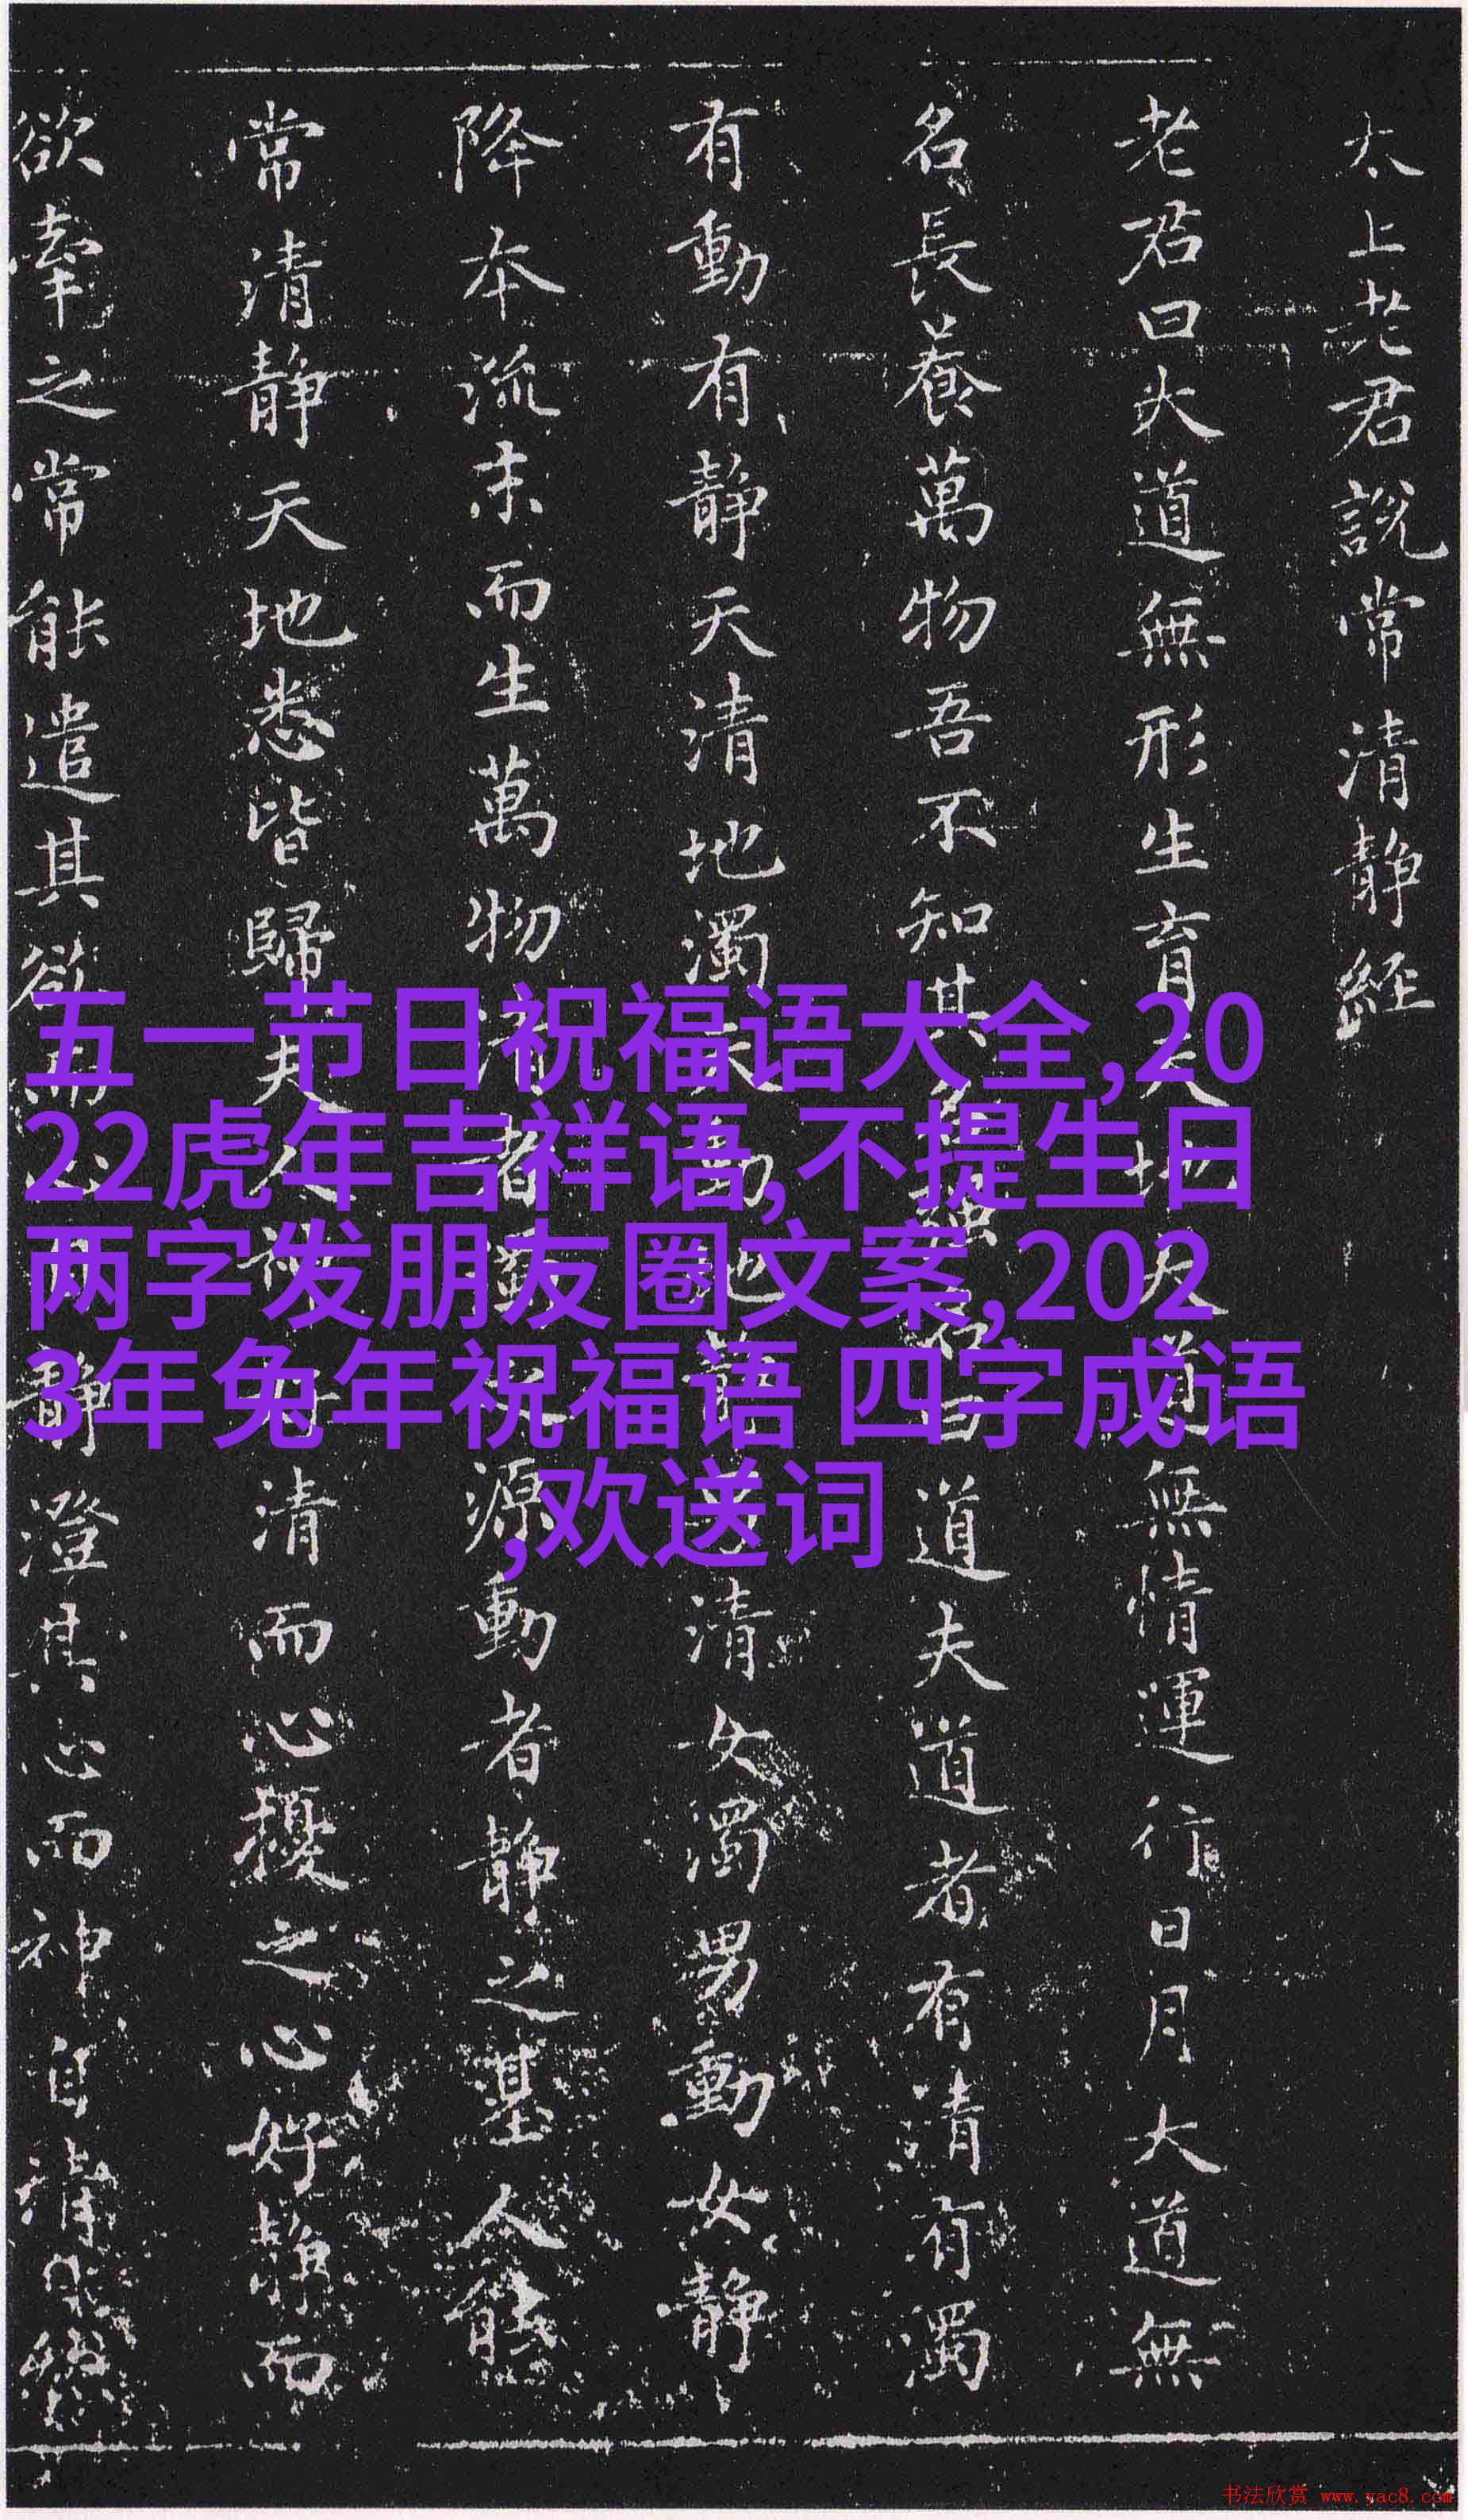 太上老君說常清静經
老君曰大道無形生育天地大道無情運行日月大道無
名長養萬物吾不知其名強名曰道夫道者有清有濁
有動有静天清地濁天動地静男清女濁男動女静
降本流末而生萬物清者濁之源動者静之基人能
常清静天地悉皆歸夫人神好清而心擾之心好静而
欲牽之常能遣其欲而心自静澄其心而神自清自然
五一节日祝福语大全,20
22虎年吉祥语,不提生日
两字发朋友圈文案,202
3年兔年祝福语 四字成语
,欢送词
书法欣赏 www.yac8.com